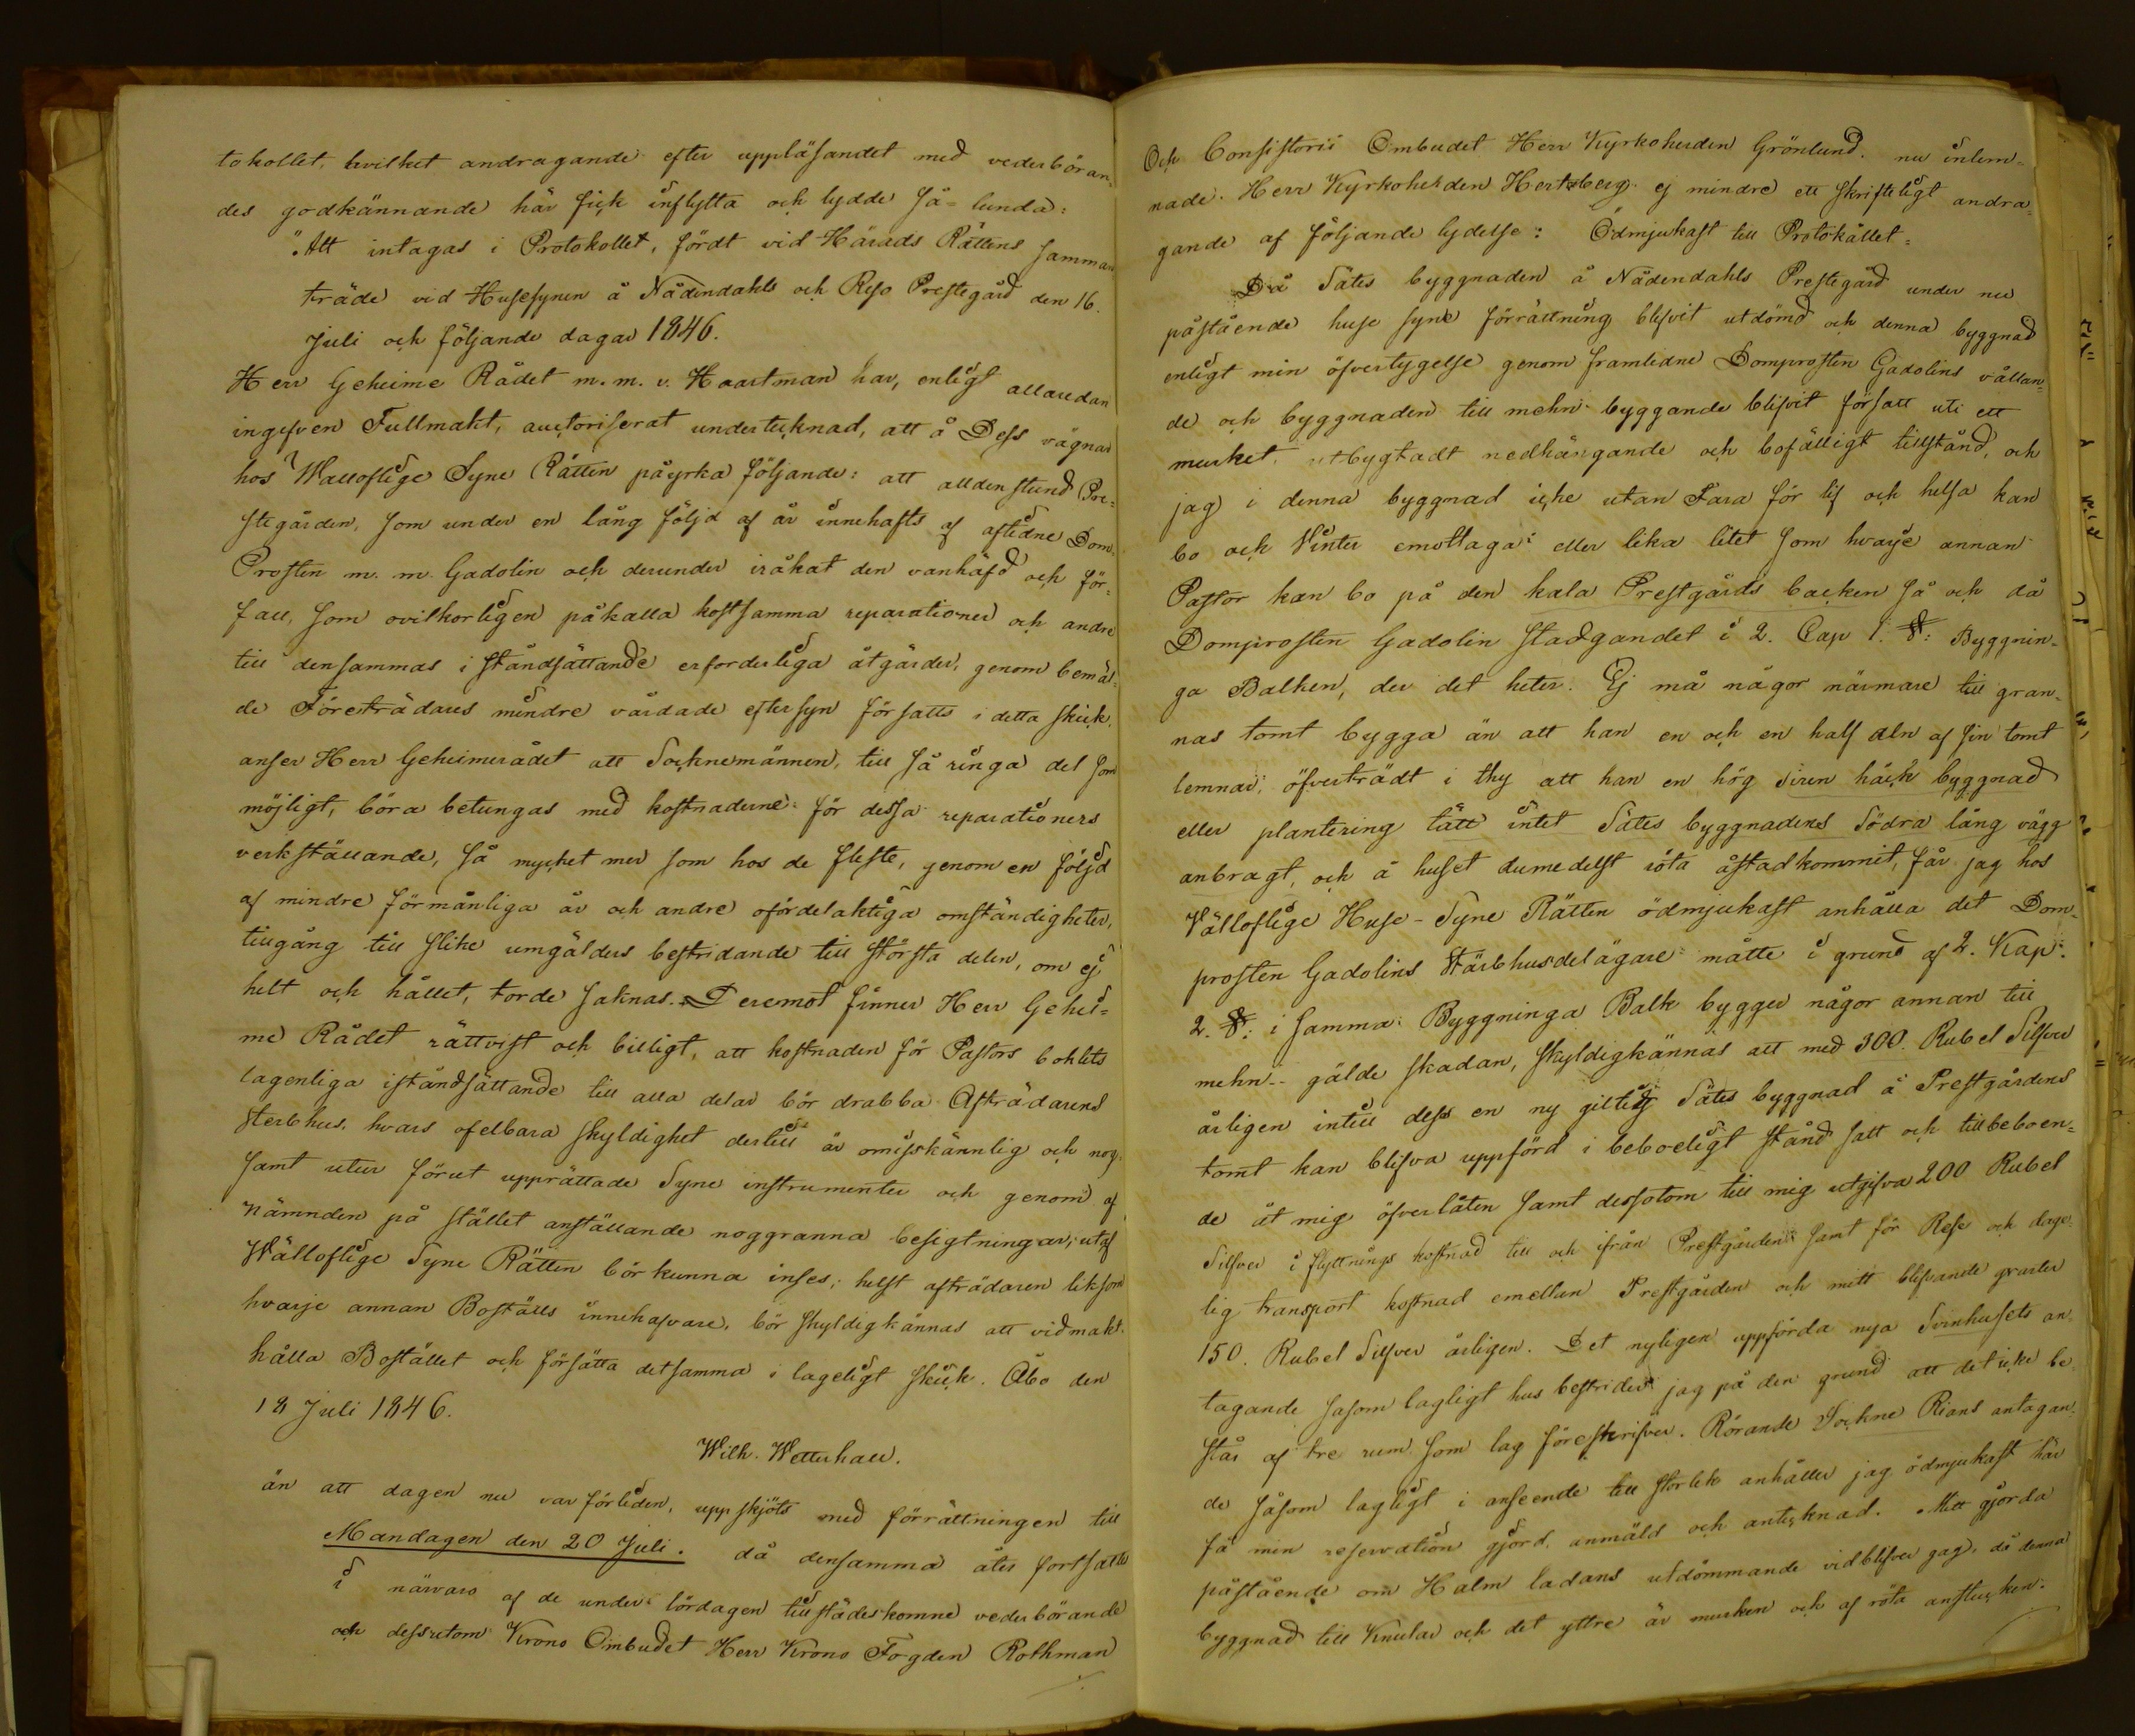 tokollet, hvilket andragande efter uppläsandet med vederböran-
des godkännande här fick inflytta och lydde så-lunda:
"Att intagas i Protokollet, fördt vid Härads Rättens samman
träde vid Husesynen å Nådendahls och Reso Prestegård den 16.
Juli och följande dagar 1846.
Herr Geheime Rådet m. m. v. Haartman har, enligt allaredan
ingifven Fullmakt, auctoriserat undertecknad, att å Dess vägnar
hos Wälloflige Syne Rätten påyrka följande: att alldenstund Pre-
stegården, som under en lång följd af år innehafts af aflidne Dom-
Prosten m. m. Gadolin och derunder iråkat den vanhäfd och för-
fall, som ovilkorligen påkalla kostsamma reparationer och andre
till densammas i ståndsättande erforderliga åtgärder, genom bemäl-
de Företrädares mindre vårdade eftersyn försatts i detta skick,
anser Herr Geheimerådet att Socknemännen, till så ringa del som
möjligt, böra betungas med kostnaderne för dessa reparationers
verkställande, så mycket mer som hos de fleste, genom en följd
af mindre förmånliga år och andre ofördelaktiga omständigheter,
tillgång till slike umgälders bestridande till största delen, om ej
helt och hållet, torde saknas. Deremot finner Herr Gehei-
me Rådet rättvist och billigt, att kostnaden för Pastors bohlets
lagenliga iståndsättande till alla delar bör drabba Afträdarens
Sterbhus, hvars ofelbara skyldighet dertill är omisskännlig och nog-
samt utur förut upprättade Syne instrumenter och genom af
Nämnden på stället anställande noggranna besigtningar, utaf
Wälloflige Syne Rätten bör kunna inses; helst afträdaren liksom
hvarje annan Boställs innehafvare, bör skyldigkännas att vidmakt-
hålla Bostället och försätta detsamma i lageligt skick. Åbo den
18 Juli 1846.
Wilh. Wetterhall.
än att dagen nu var förliden, uppskjöts med förrättningen till
Mandagen den 20 Juli. då densamma åter fortsattes
i närvaro af de under lördagen tillstädeskomne vederbörande
och dessutom Krono Ombudet Herr Krono Fogden Rothman
Och Consistorii Ombudet Herr Kyrkoherden Grönlund. nu inlem-
nade Herr Kyrkoherden Hertzberg ej mindre ett skrifteligt andra-
gande af följande lydelse: Ödmjukast till Protokållet=
Då Sätes byggnaden å Nådendahls Prestegård under nu
påstående huse syne förrättning blifvit utdömd och denna byggnad
enligt min öfvertygelse genom framlidne Domprosten Gadolins vållan-
de och byggnaden till mehn byggande blifvit försatt uti ett
murket, utbygtadt nedhängande och bofälligt tillstånd, och
jag i denna byggnad icke utan Fara för lif och helsa kan
bo och Vinter emottaga eller lika litet som hvarje annan
Pastor kan bo på den kala Prestgårds backen så och då
Domprosten Gadolin stadgandet i 2. Cap 1. §: Byggnin-
ga Balken, der det heter. Ej må någor närmare till gran-
nas tomt bygga än att han en och en half aln af sin tomt
lemnar, öfverträdt i thy att han en hög siren häck byggnad
eller plantering tätt intet Sätes byggnadens Södra lång vägg
anbragt, och å huset dumedelst röta åstadkommit, får jag hos
Välloflige Huse-Syne Rätten ödmjukast anhålla det Dom-
prosten Gadolins Stärbhusdelägare måtte i grund af 2. Kap:
2. §: i samma Byggninga Balk bygger någor annan till
mehn-- gälde skadan, skyldigkännas att med 300. Rubel Silfver
årligen intill dess en ny giltig Sätes byggnad å Prestgårdens
tomt kan blifva uppförd i beboeligt stånd satt och till beboen-
de åt mig öfverlåten samt dessotom till mig utgifva 200 Rubel
Silfver i flyttnings kostnad till och ifrån Prestgården samt för Rese och dage-
lig transport kostnad emellan Prestgården och mitt blifvande qvarter
150. Rubel Silfver årligen. Det nyligen uppförda nya Svinhusets an-
tagande såsom lagligt hus bestrider jag på den grund att det icke be-
står af tre rum som lag föreskrifver. Rörande Sockne Rians antagan-
de såsom lagligt i anseende till storlek anhåller jag ödmjukast här
få min reservation gjord, anmäld och antecknad. Mitt gjorda
påstående om Halm ladans utdömmande vidblifver jag, då denna
byggnad till Knutar och det yttre är murken och af röta anstucken.